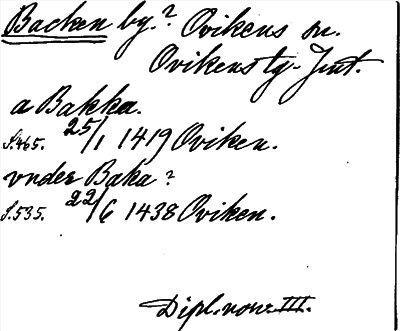 Backen by.? Ovikens sn.
Ovikens tg. Jmt.
a Bakka.
S.465. 25/1 1419 Oviken.
vnder Baka?
S.535. 22/6 1438 Oviken.
Dipl. norv. III.